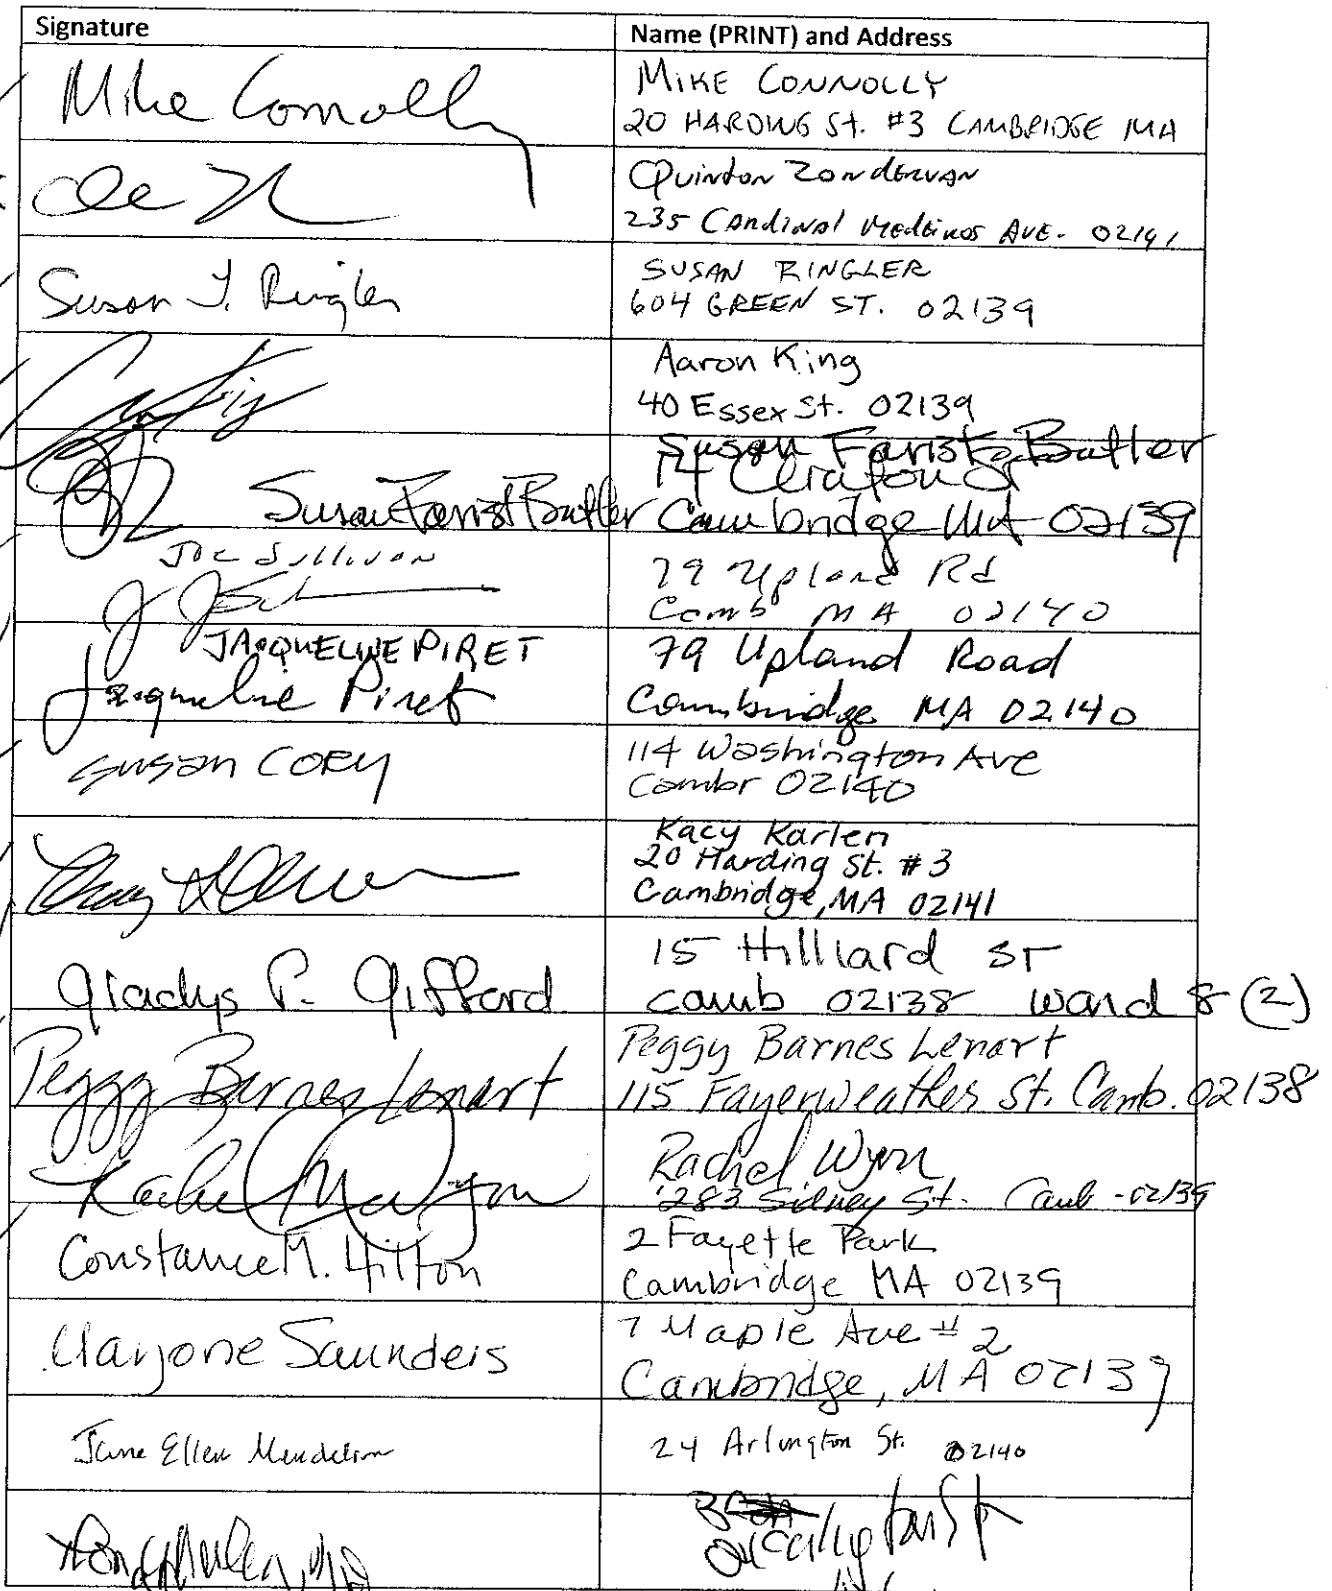 Signature Name (PRINT) and Address
Mike Connolly MIKE CONNOLLY
20 HARDING St. #3 CAMBRIDGE MA
Quinton Zondervan
235 Cardinal Medeiros AVE. 02141
Susan J. Ringler SUSAN RINGLER
604 GREEN ST. 02139
Aaron King
40 Essex St. 02139
Susan Farist Butler
14 Clinton St
Susan Farist Butler Cambridge MA 02139
Joe Sullivan 79 Upland Rd
Camb MA 02140
JACQUELINE PIRET 79 Upland Road
Jacqueline Piret Cambridge MA 02140
SUSAN CORY 114 Washington Ave
Cambr 02140
Kacy Karlen
20 Harding St. #3
Cambridge, MA 02141
15 Hilliard ST
Gladys P. Gifford camb 02138 ward 8 (2)
Peggy Barnes Lenart
Peggy Barnes Lenart 115 Fayerweather St. Camb. 02138
Rachel Wyon
283 Sidney St. Camb - 02139
Constance M. Hilton 2 Fayette Park
Cambridge MA 02139
Marjorie Saunders 7 Maple Ave #2
Cambridge, MA 02139
Jane Ellen Mendelson 24 Arlington St. 02140